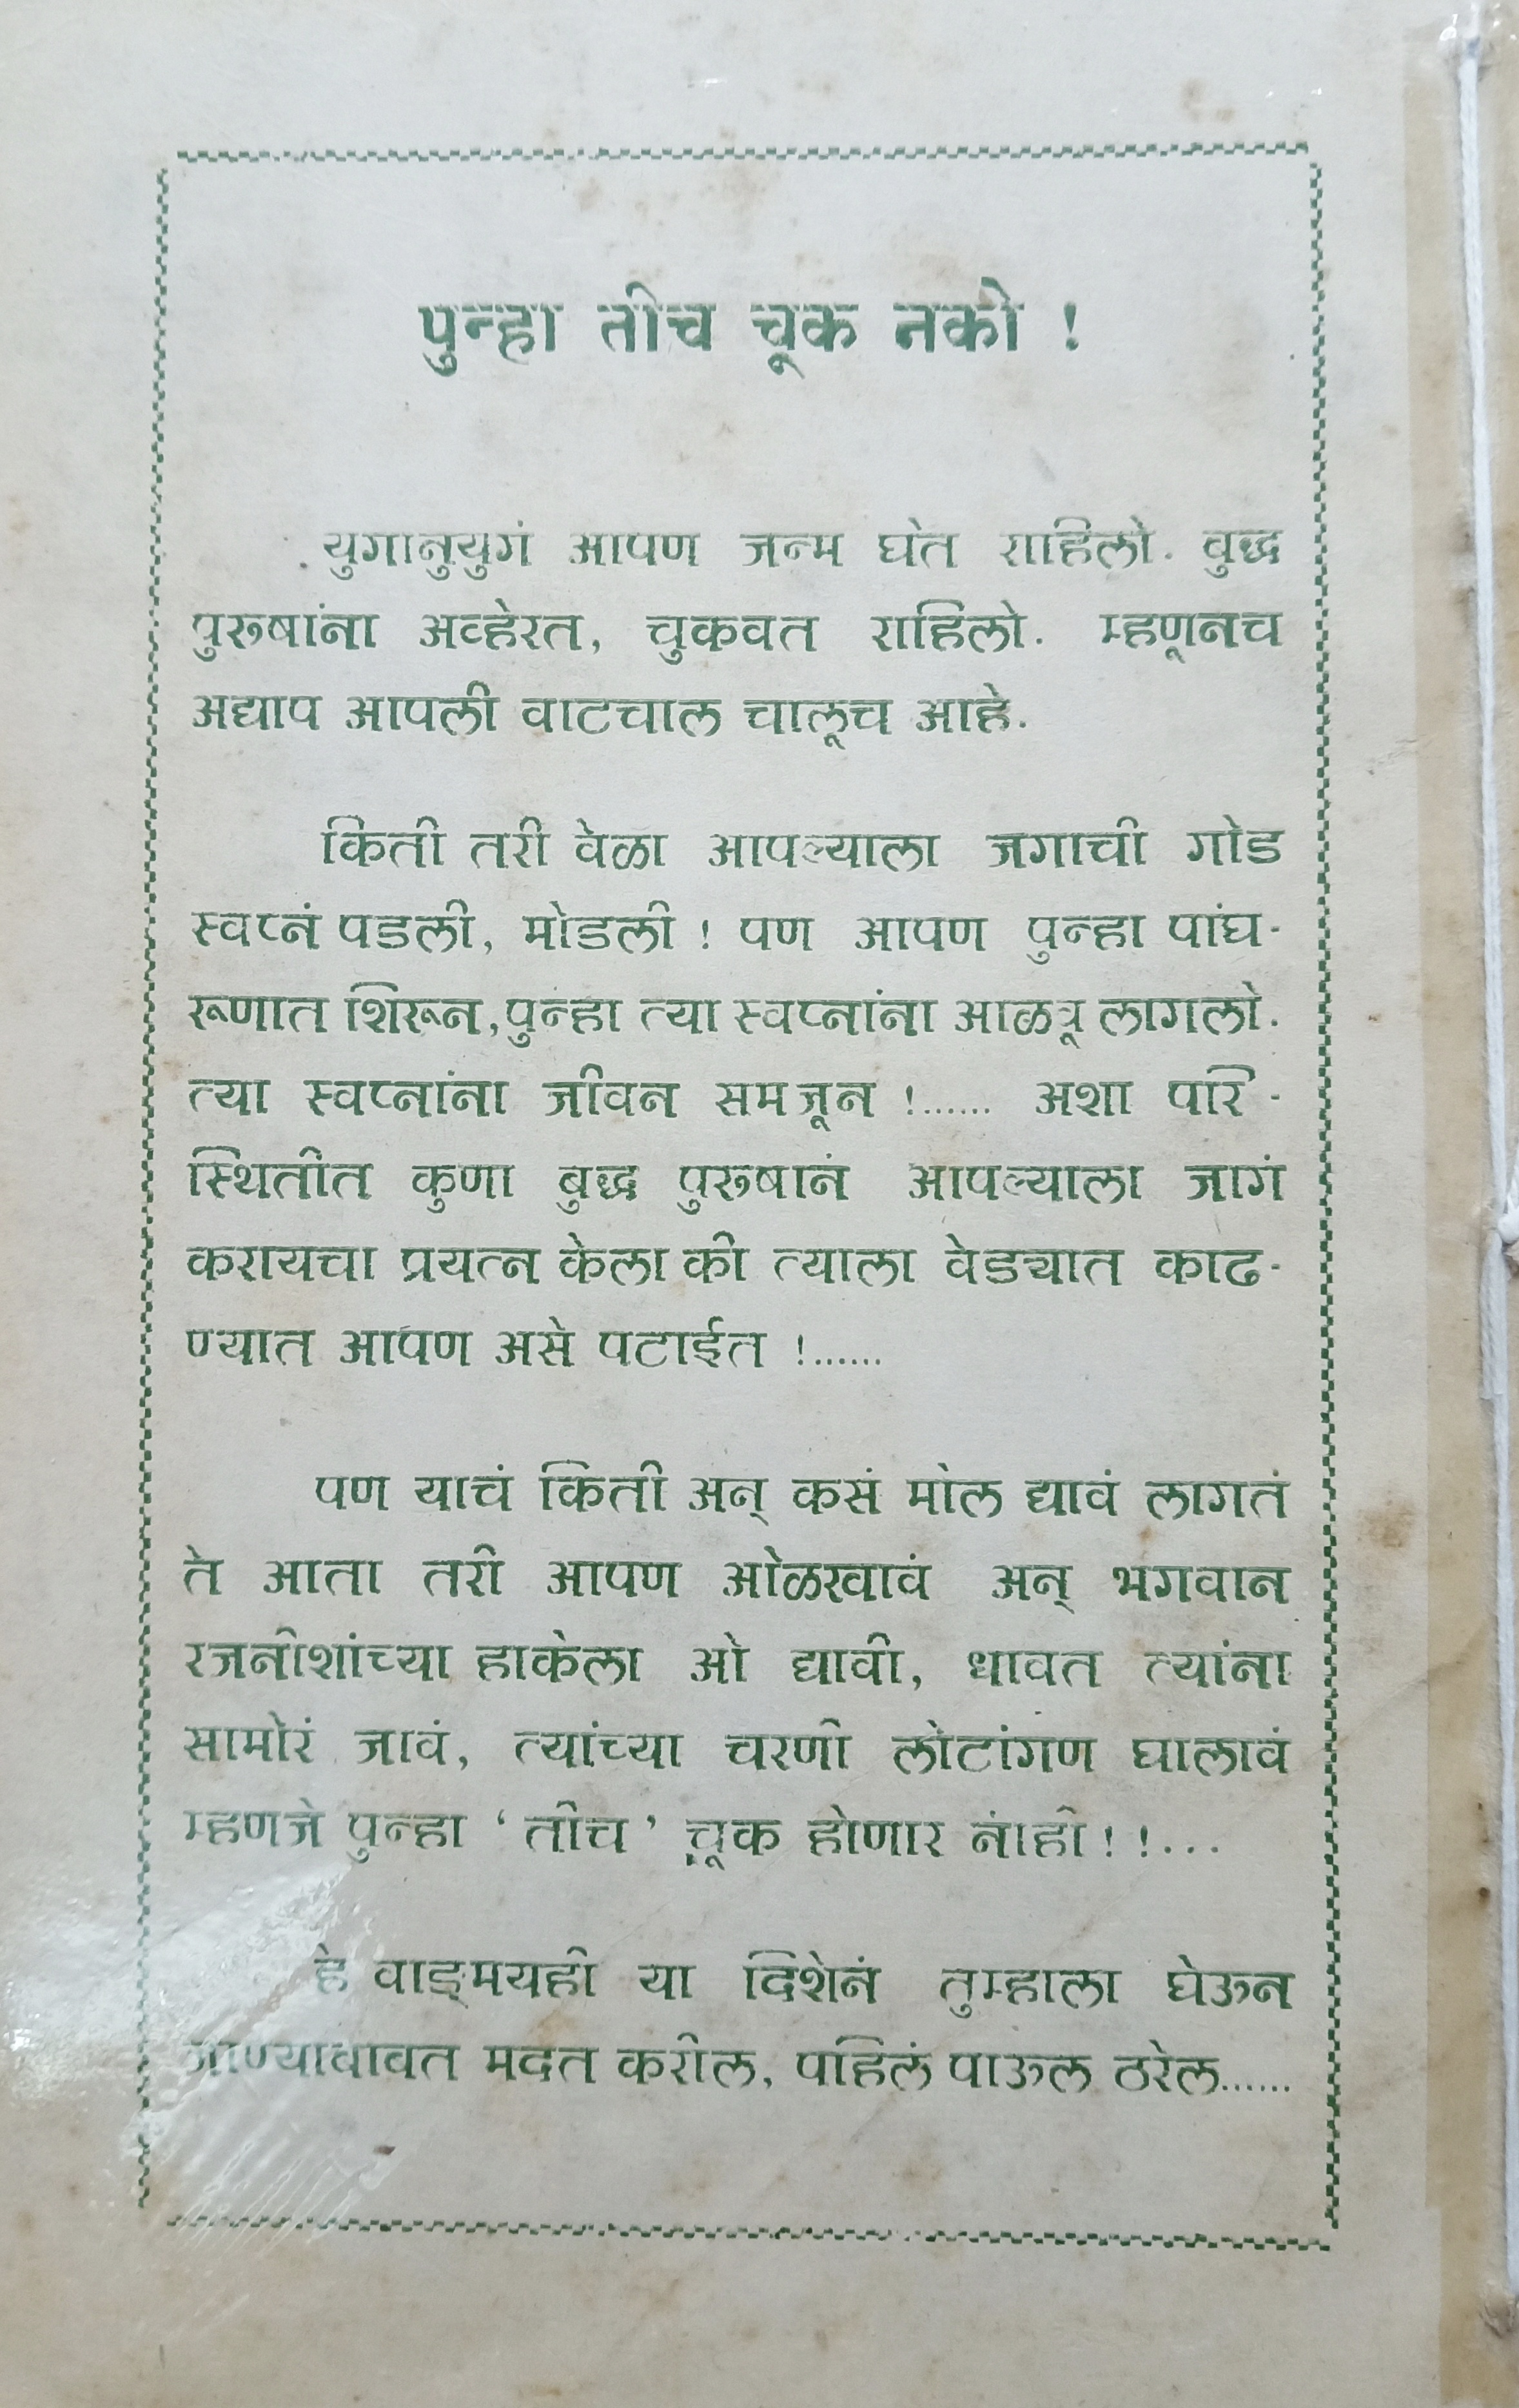 पुन्हा तीच चूक नको !
युगानुयुगं आपण जन्म घेत राहिलो. बुद्ध
पुरूषांना अव्हेरत, चुकवत राहिलो. म्हणूनच
अद्याप आपली वाटचाल चालूच आहे.
किती तरी वेळा आपल्याला जगाची गोड
स्वप्नं पडली, मोडली ! पण आपण पुन्हा पांघ-
रूणात शिरून, पुन्हा त्या स्वप्नांना आळवू लागलो.
त्या स्वप्नांना जीवन समजून !...... अशा परि-
स्थितीत कुणा बुद्ध पुरूषानं आपल्याला जागं
करायचा प्रयत्न केला की त्याला वेड्यात काढ-
ण्यात आपण असे पटाईत !......
पण याचं किती अन् कसं मोल द्यावं लागतं
ते आता तरी आपण ओळखावं अन् भगवान
रजनीशांच्या हाकेला ओ द्यावी, धावत त्यांना
सामोरं जावं, त्यांच्या चरणी लोटांगण घालावं
म्हणजे पुन्हा ‘ तीच ’ चूक होणार नाही ! !...
हे वाङ्मयही या दिशेनं तुम्हाला घेऊन
जाण्याबाबत मदत करील, पहिलं पाऊल ठरेल......